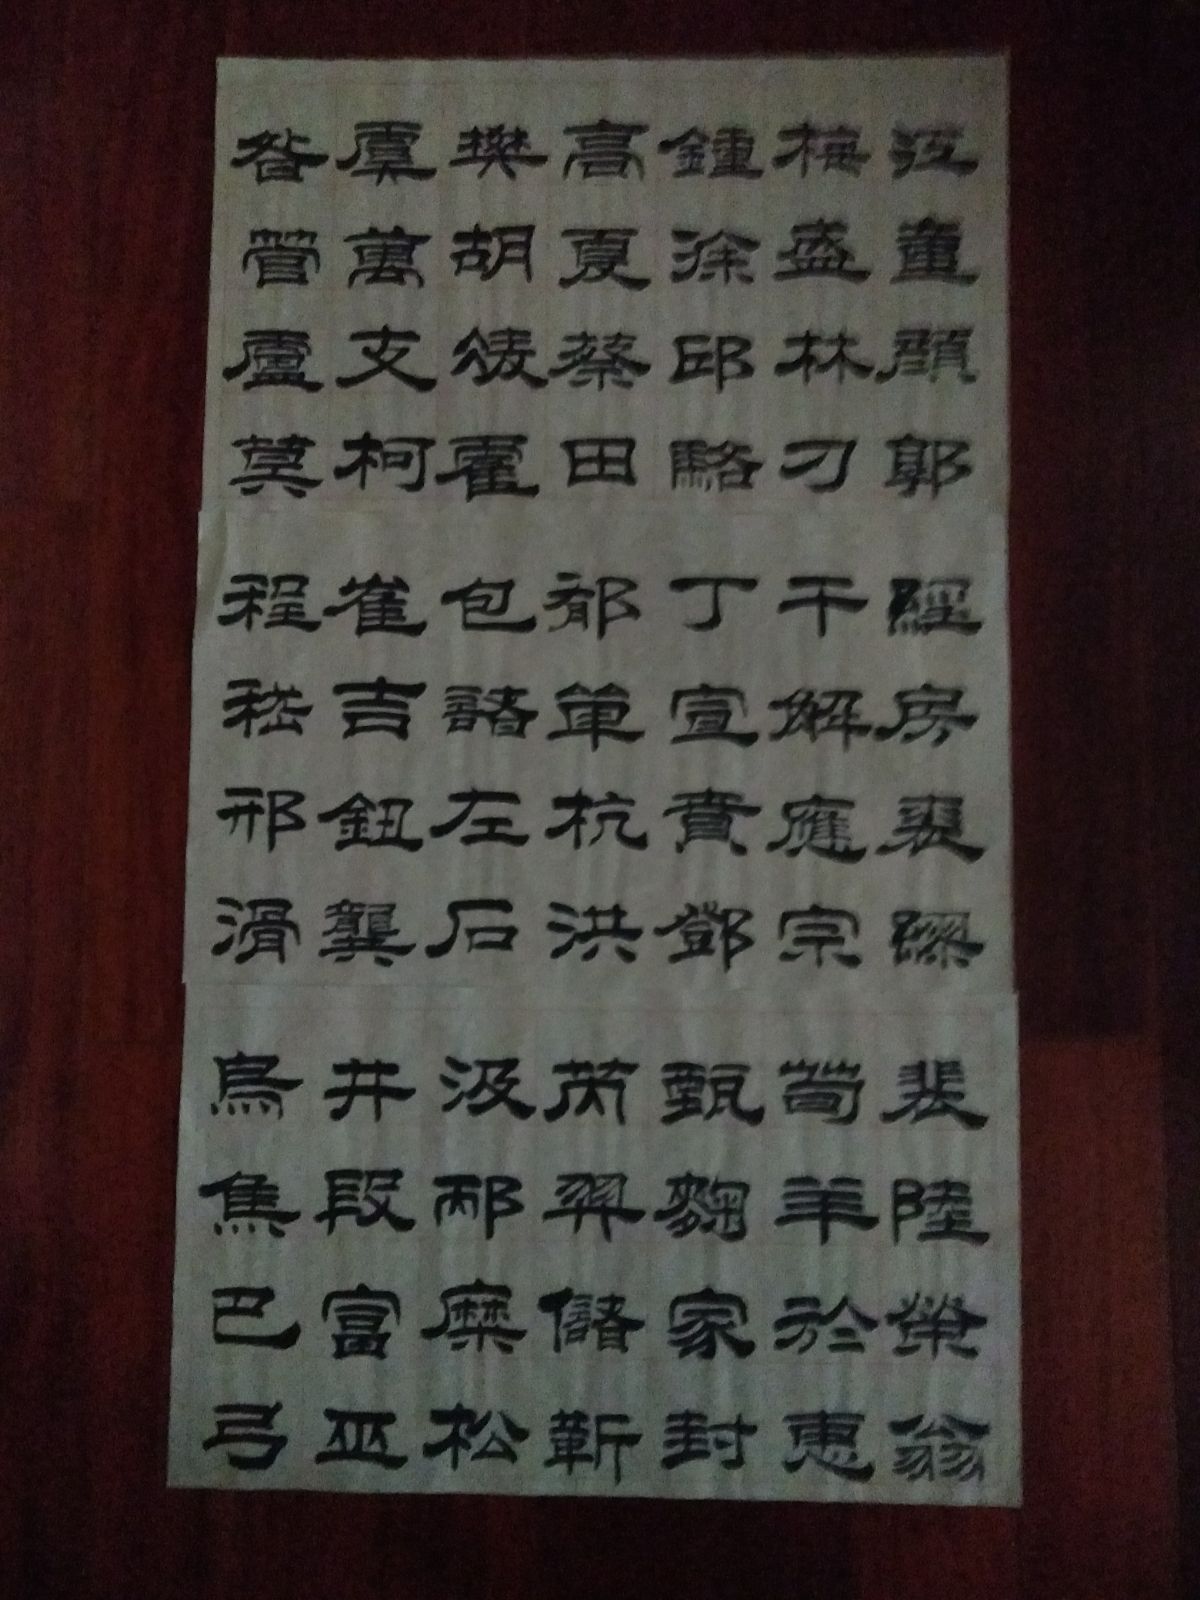 江童顏郭
梅盛林刁
鍾徐邱駱
高夏蔡田
樊胡凌霍
虞萬支柯
昝管盧莫
經房裘繆
干解應宗
丁宣賁鄧
郁單杭洪
包諸左石
崔吉鈕龔
程嵇邢滑
裴陸榮翁
荀羊於惠
甄麴家封
芮羿儲靳
汲邴糜松
井段富巫
烏焦巴弓